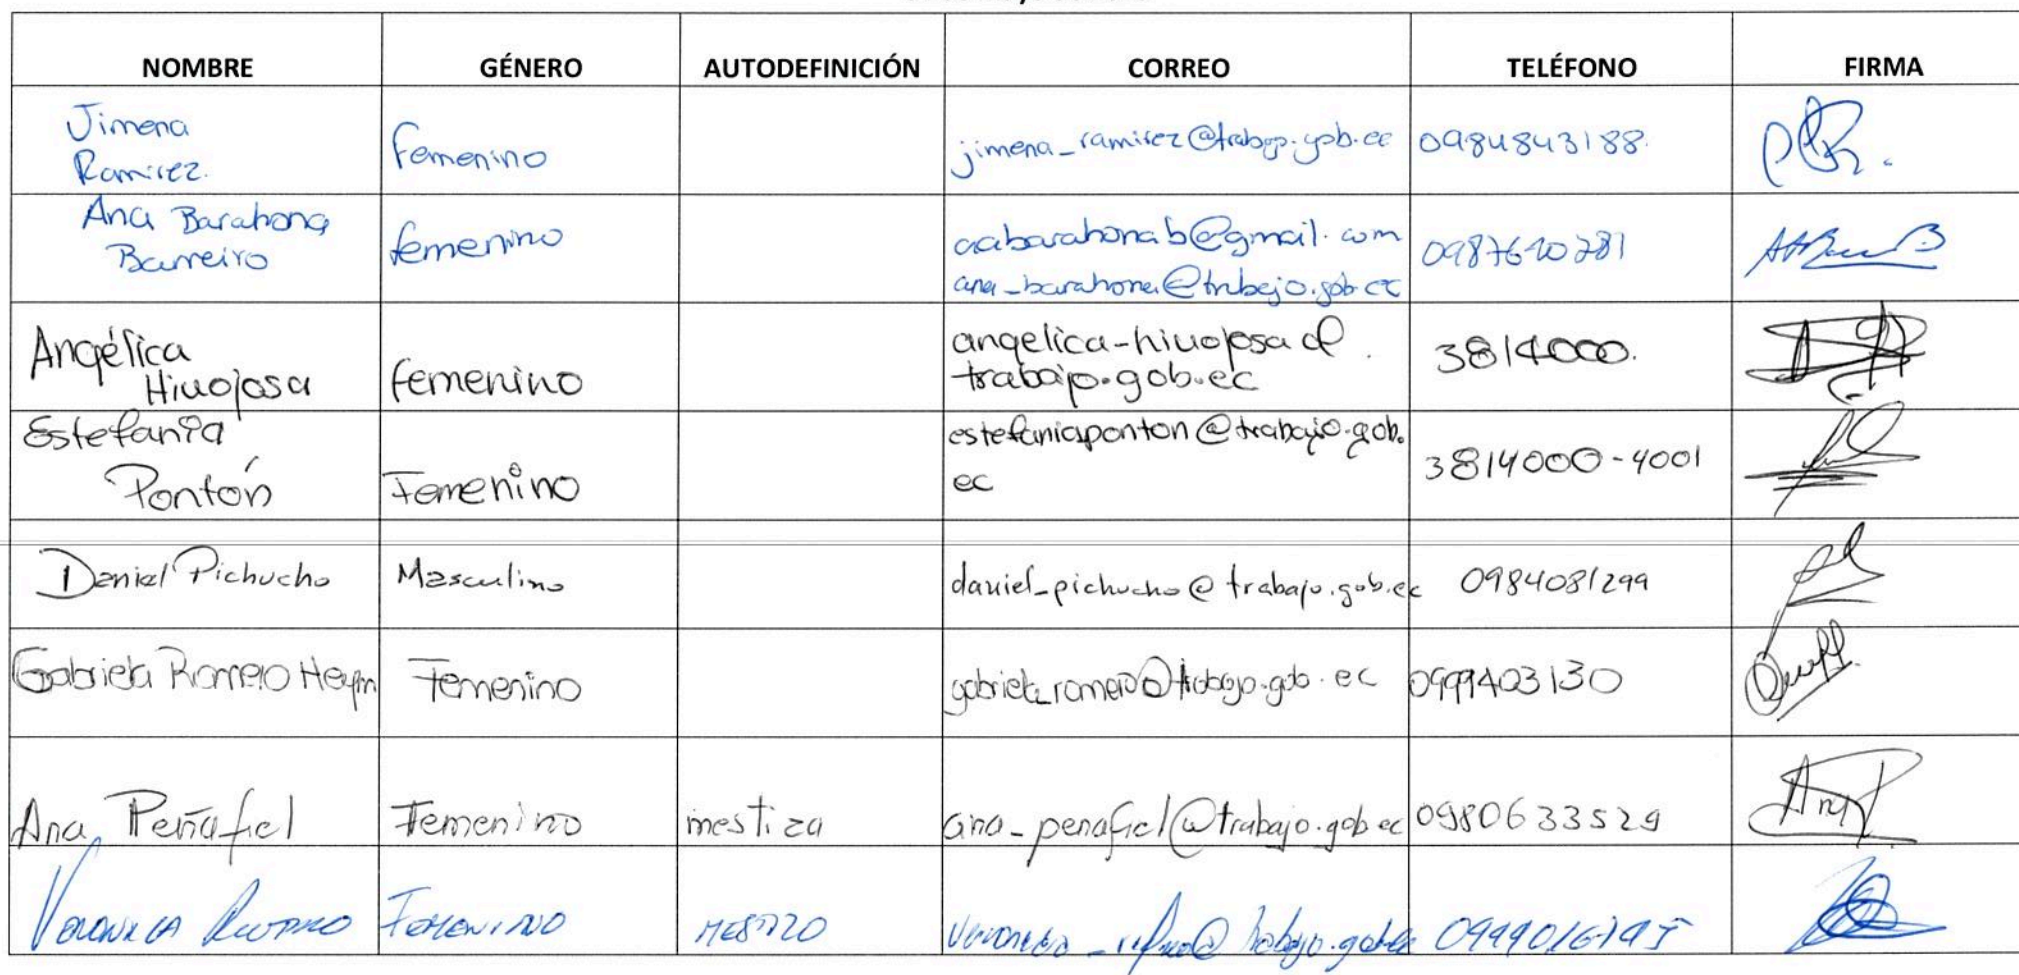 NOMBRE GÉNERO AUTODEFINICIÓN CORREO TELÉFONO FIRMA
Jimena
Ramirez.
femenino
jimena_ramirez@trabajo.gob.ec
0984843188.
Ana Barahona
Barreiro
femenino
aabarahonab@gmail.com
ana_barahona@trabajo.gob.ec
Angélica
Hinojosa
femenino
angelica-hinojosa@
trabajo.gob.ec
3814000.
Estefanía
Pontón
Femenino
estefaniaponton@trabajo.gob.
ec
3814000-4001
Daniel Pichucho
Masculino
daniel_pichucho@trabajo.gob.ec
0984081299
Gabriela Romero
Femenino
gabriela_romero@trabajo.gob.ec
0999403130
Ana Peñafiel
Femenino
mestiza
ana_penafiel@trabajo.gob.ec
0980633529
VERONICA
FEMENINO
MESTIZO